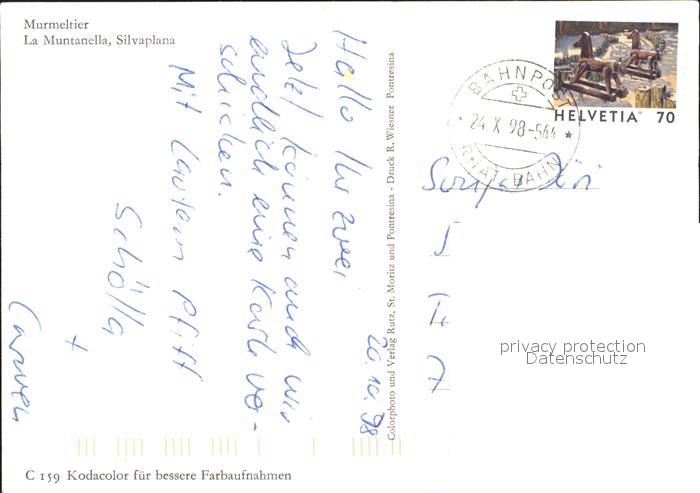 Murmeltier
La Muntanella, Silvaplana
HELVETIA 70
BAHNPOST
24 X 98-544 *
RHÄT. BAHN
Colorphoto und Verlag Rutz, St. Moritz und Pontresina - Druck R. Wiesner Pontresina
20.10.98
Hallo Ihr zwei
Jetzt können auch wir
endlich eine Karte ver-
schicken.
Mit lautem Pfiff
+
Carmen
privacy protection
Datenschutz
C 159 Kodacolor für bessere Farbaufnahmen